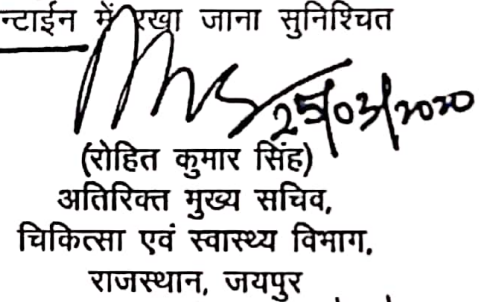 न्टाईन में रखा जाना सुनिश्चित
25/03/2020
(रोहित कुमार सिंह)
अतिरिक्त मुख्य सचिव,
चिकित्सा एवं स्वास्थ्य विभाग,
राजस्थान, जयपुर